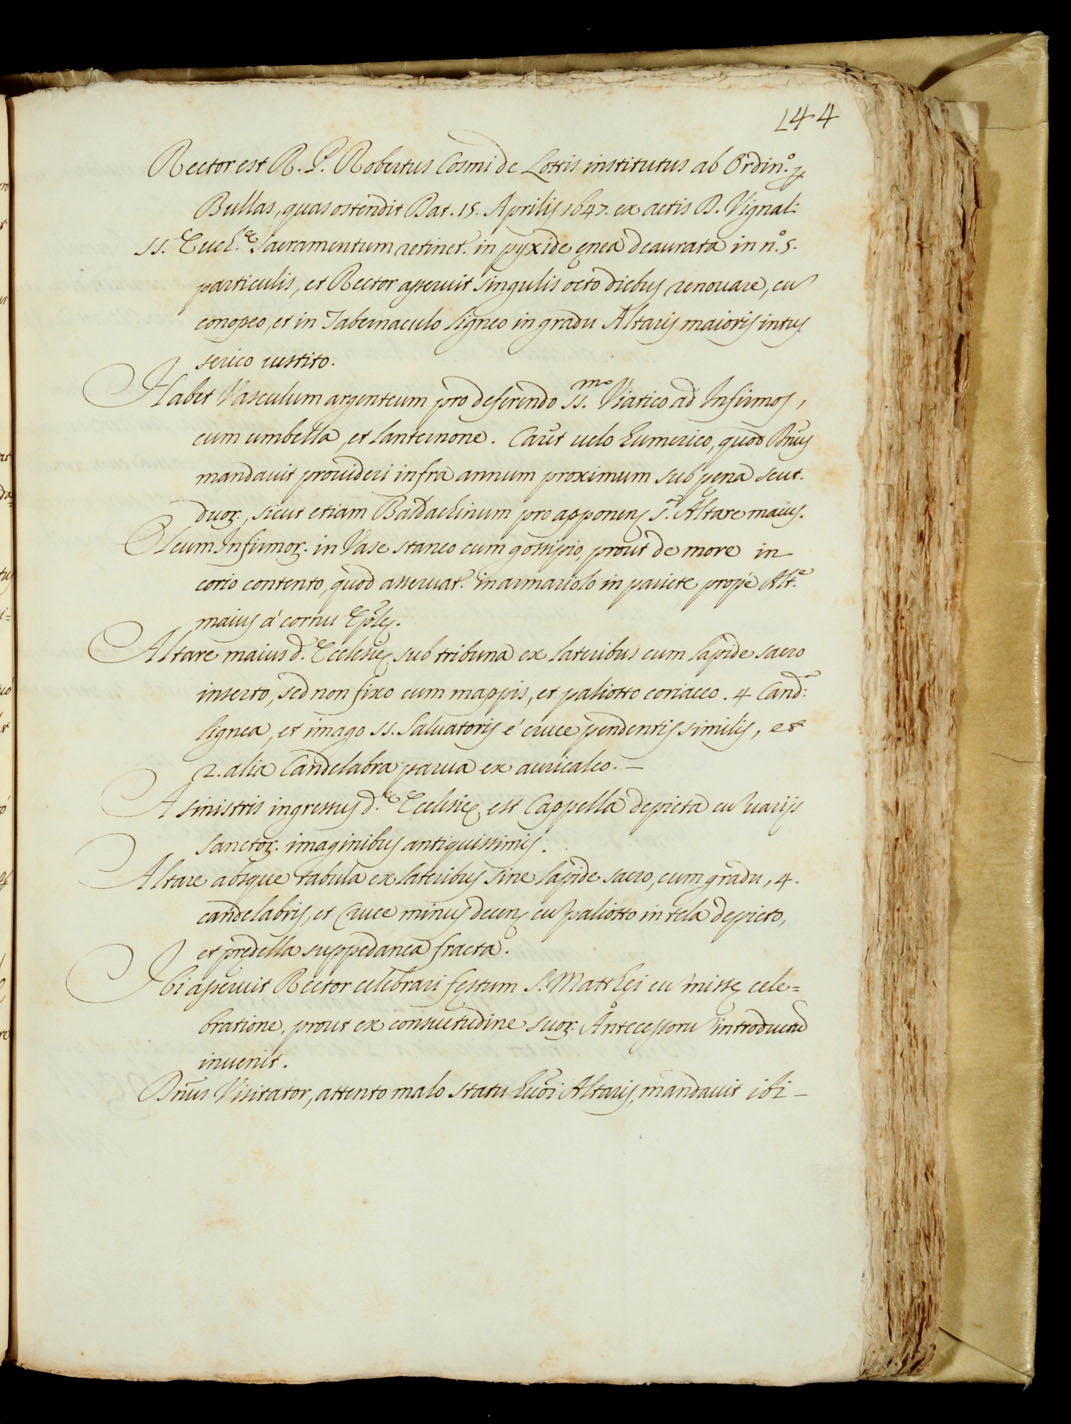 144
Rector est R. P. Robertus Cosmi de Lottis institutus ab Ordin.º p
Bullas, quas ostendit Dat. 15. Aprilis 1647. ex actis D. Vignal:
SS. Euch.æ Sacramentum retinet. in pyxide ęnea deaurata in nº. 5.
particulis, et Rector asseruit singulis octo diebus renouare, cū
conopeo, et in Tabernaculo ligneo in gradu Altaris maioris intus
serico uestito.
Habet Vasculum argenteum pro deferendo SS.mo Viatico ad Infirmos,
cum umbella, et lanternone. Caret uelo humerico, quod Dnus
mandauit prouideri infra annum proximum sub pena scut.
duor., sicut etiam Baldachinum pro apponens s.ª Altare maius.
Oleum Infirmor. in Vase staneo cum gossipio, prout de more in
corio contento, quod asseruat. in armariolo in pariete propè Alt.e
maius à cornu Eplæ.
Altare maius d.ę Ecclesię sub tribuna ex lateribus cum lapide sacro
inserto, sed non fixo cum mappis, et paliotto coriaceo. 4 Cand:
lignea, et imago SS. Saluatoris è cruce pendentis similis, et
2. alia Candelabra parua ex auricalco. —
A sinistris ingressus d.æ Ecclesię est Cappella depicta cū uarijs
Sanctor. imaginibus antiquissimis.
Altare absque tabula ex lateribus sine lapide sacro, cum gradu, 4.
candelabris, et Cruce minus decens cū paliotto in tela depicto,
et prędella suppedanea fracta.
Ibi asseruit Rector celebrari festum S. Matthęi cū missę cele=
bratione, prout ex consuetudine suor. Antecessorū introductū
inuenit.
Dnus Visitator, attento malo statu huōi Altaris, mandauit ibi —